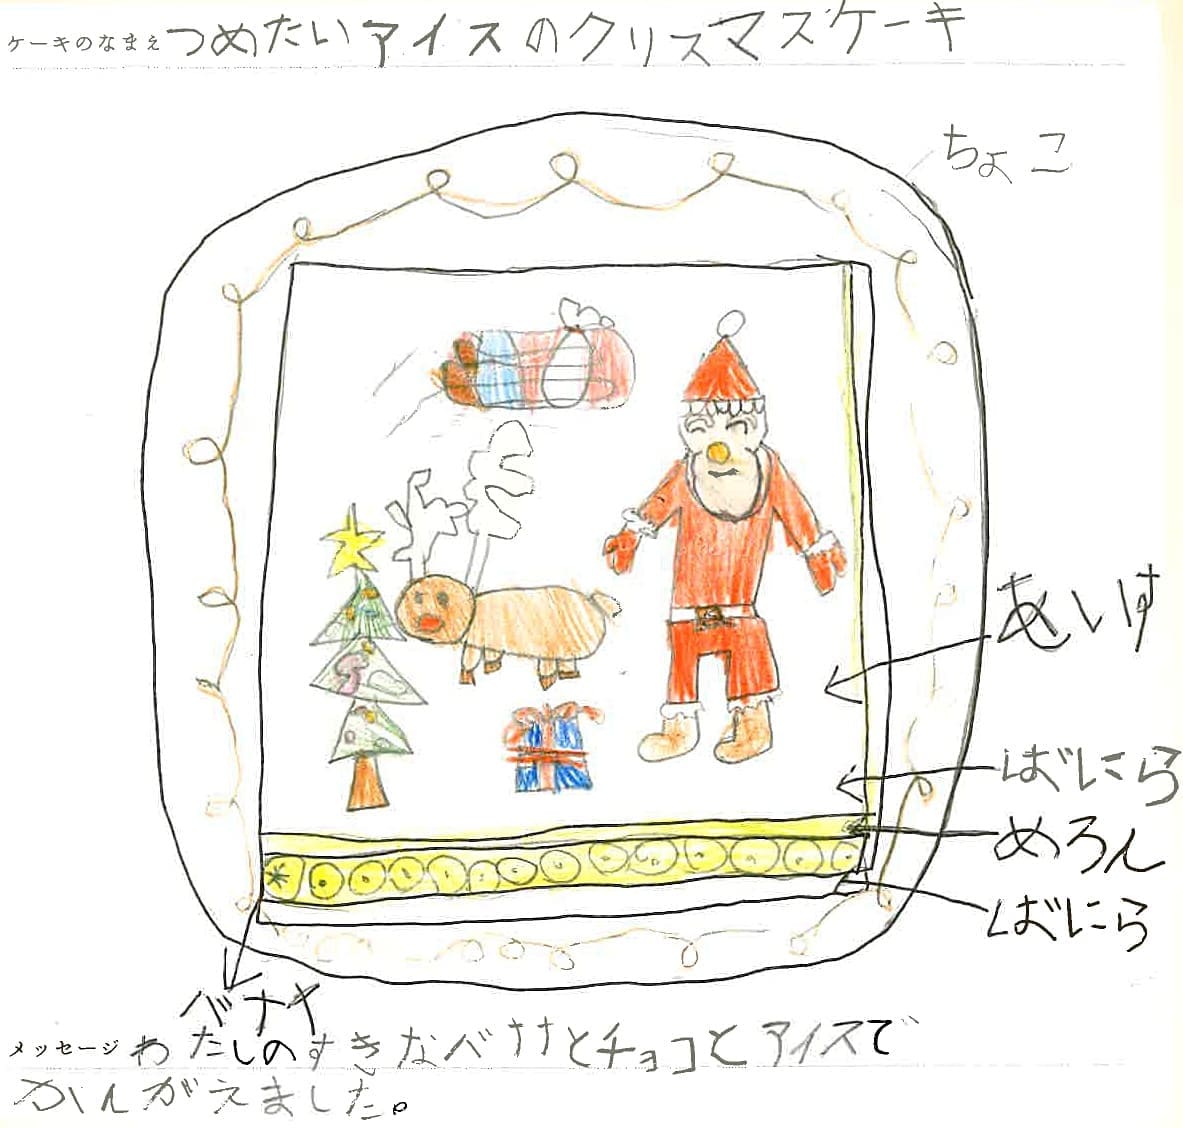 ケーキのなまえ つめたいアイスのクリスマスケーキ
ちょこ
あいす
ばにら
めろん
ばにら
バナナ
メッセージ わたしのすきなバナナとチョコとアイスで
かんがえました。